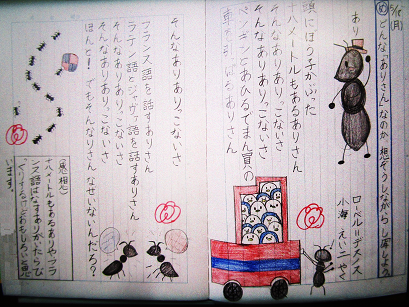 5/16(月)
め どんな「ありさん」なのか想ぞうしながら し写しよう
あり
ローベル=デスノス
小海 えいニ やく
頭にぼう子かぶった
十八メートルもあるありさん
そんなありありっこないさ
そんなありありっこないさ
ペンギンとあひるでまん員の
車を引っぱるありさん
そんなありありっこないさ
そんなありありっこないさ
フランス語を話すありさん
ラテン語とジャヴァ語を話すありさん
そんなありありっこないさ
そんなありありっこないさ
ほんと!でもそんなありさん なぜいないんだろ?
(感想)
十八メートルもあるありやフラ
ンス語
います。